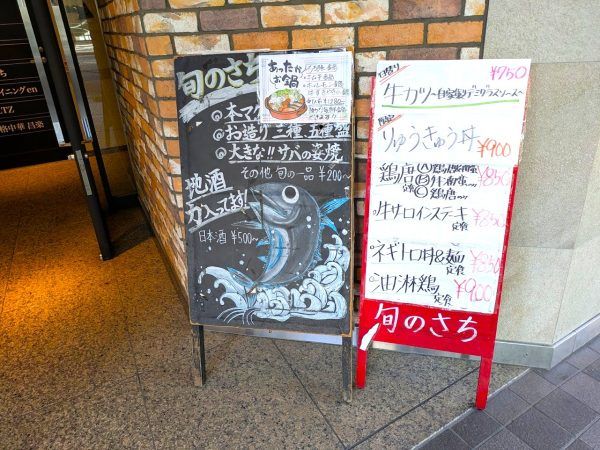 ち
イニングen
TZ
格中華 昌楽
旬のさち
あったか
お鍋
◎本マグ
◎お造り 三種、五種盛
◎大きな!!サバの姿焼
その他 旬の一品 ¥200〜
地酒
力入ってます!
日本酒 ¥500〜
日替り
¥750
牛カツ〜自家製デミグラスソース〜
りゅうきゅう丼
¥900
鶏唐
定食
¥850
牛サーロインステーキ
定食
¥850
ネギトロ丼&麺
定食
¥850
油淋鶏
定食
¥900
旬のさち